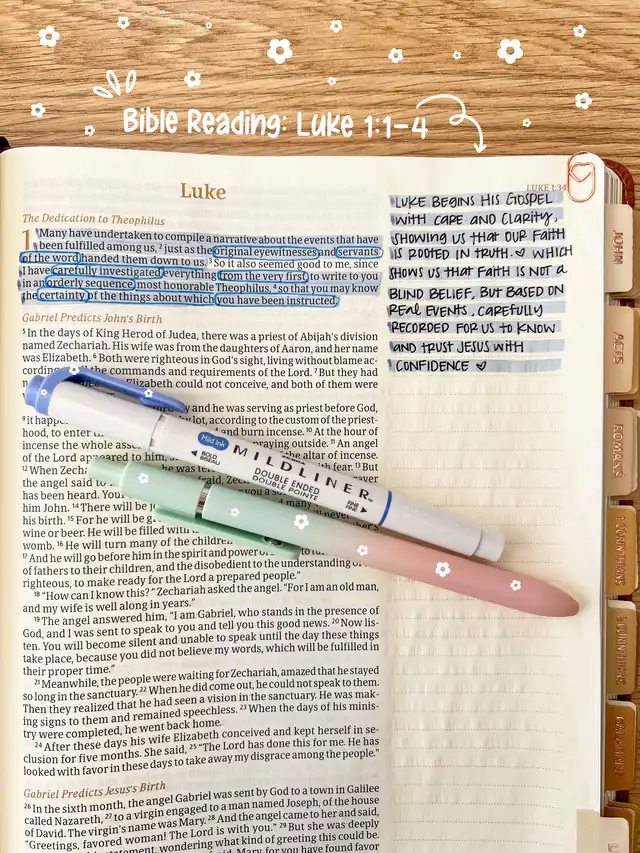 Bible Reading: Luke 1:1-4
Luke
LUKE 1:34
The Dedication to Theophilus
1 Many have undertaken to compile a narrative about the events that have
been fulfilled among us, 2 just as the original eyewitnesses and servants
of the word handed them down to us. 3 So it also seemed good to me, since
I have carefully investigated everything from the very first, to write to you
in an orderly sequence, most honorable Theophilus, 4 so that you may know
the certainty of the things about which you have been instructed.
Gabriel Predicts John's Birth
5 In the days of King Herod of Judea, there was a priest of Abijah's division
named Zechariah. His wife was from the daughters of Aaron, and her name
was Elizabeth. 6 Both were righteous in God's sight, living without blame ac-
cording the commands and requirements of the Lord. 7 But they had
Elizabeth could not conceive, and both of them were
y and he was serving as priest before God,
9 it happe by lot, according to the custom of the priest-
hood, to enter and burn incense. 10 At the hour of
incense the whole asse praying outside. 11 An angel
of the Lord appeared to him, the altar of incense.
12 When Zecha he was ter fear. 13 But
the angel said to
has been heard. Your
him John. 14 There will be j
his birth. 15 For he will be g
wine or beer. He will be filled with
womb. 16 He will turn many of the children
17 And he will go before him in the spirit and power
of fathers to their children, and the disobedient to the understanding
righteous, to make ready for the Lord a prepared people."
18 "How can I know this?" Zechariah asked the angel. "For I am an old man,
and my wife is well along in years."
19 The angel answered him, "I am Gabriel, who stands in the presence of
God, and I was sent to speak to you and tell you this good news. 20 Now lis-
ten. You will become silent and unable to speak until the day these things
take place, because you did not believe my words, which will be fulfilled in
their proper time."
21 Meanwhile, the people were waiting for Zechariah, amazed that he stayed
so long in the sanctuary. 22 When he did come out, he could not speak to them.
Then they realized that he had seen a vision in the sanctuary. He was mak-
ing signs to them and remained speechless. 23 When the days of his minis-
try were completed, he went back home.
24 After these days his wife Elizabeth conceived and kept herself in se-
clusion for five months. She said, 25 "The Lord has done this for me. He has
looked with favor in these days to take away my disgrace among the people."
Gabriel Predicts Jesus's Birth
26 In the sixth month, the angel Gabriel was sent by God to a town in Galilee
called Nazareth, 27 to a virgin engaged to a man named Joseph, of the house
of David. The virgin's name was Mary. 28 And the angel came to her and said,
"Greetings, favored woman! The Lord is with you." 29 But she was deeply
statement, wondering what kind of greeting this could be.
Mary, for you have found favor
LUKE BEGINS HIS GOSPEL
WITH CARE AND CLARITY,
SHOWING US THAT OUR FAITH
IS ROOTED IN TRUTH. ♡ WHICH
SHOWS US THAT FAITH IS NOT A
BLIND BELIEF, BUT BASED ON
REAL EVENTS, CAREFULLY
RECORDED FOR US TO KNOW
AND TRUST JESUS WITH
CONFIDENCE ♡
Mild ink
MILDLINER™
DOUBLE ENDED
DOUBLE POINTE
BOLD
BISEAU
FINE
FINE
JOHN
ACTS
ROMANS
1 CORINTHIANS
2 CORINTHIANS
GALATIANS